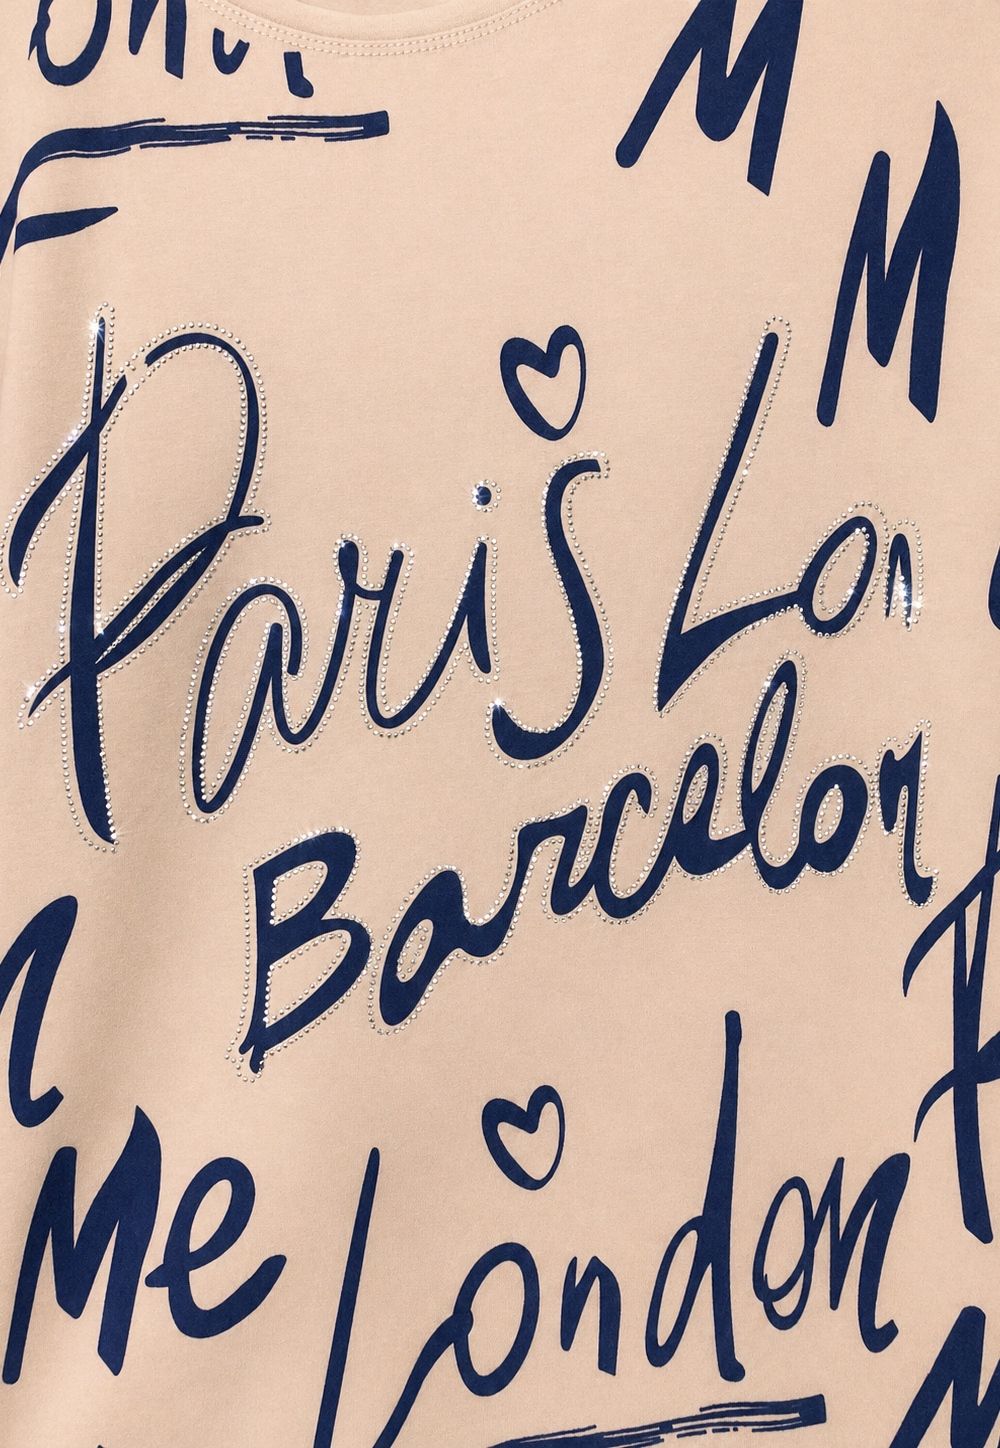 M
M
Paris Lon
Barcelon
Me
London
M